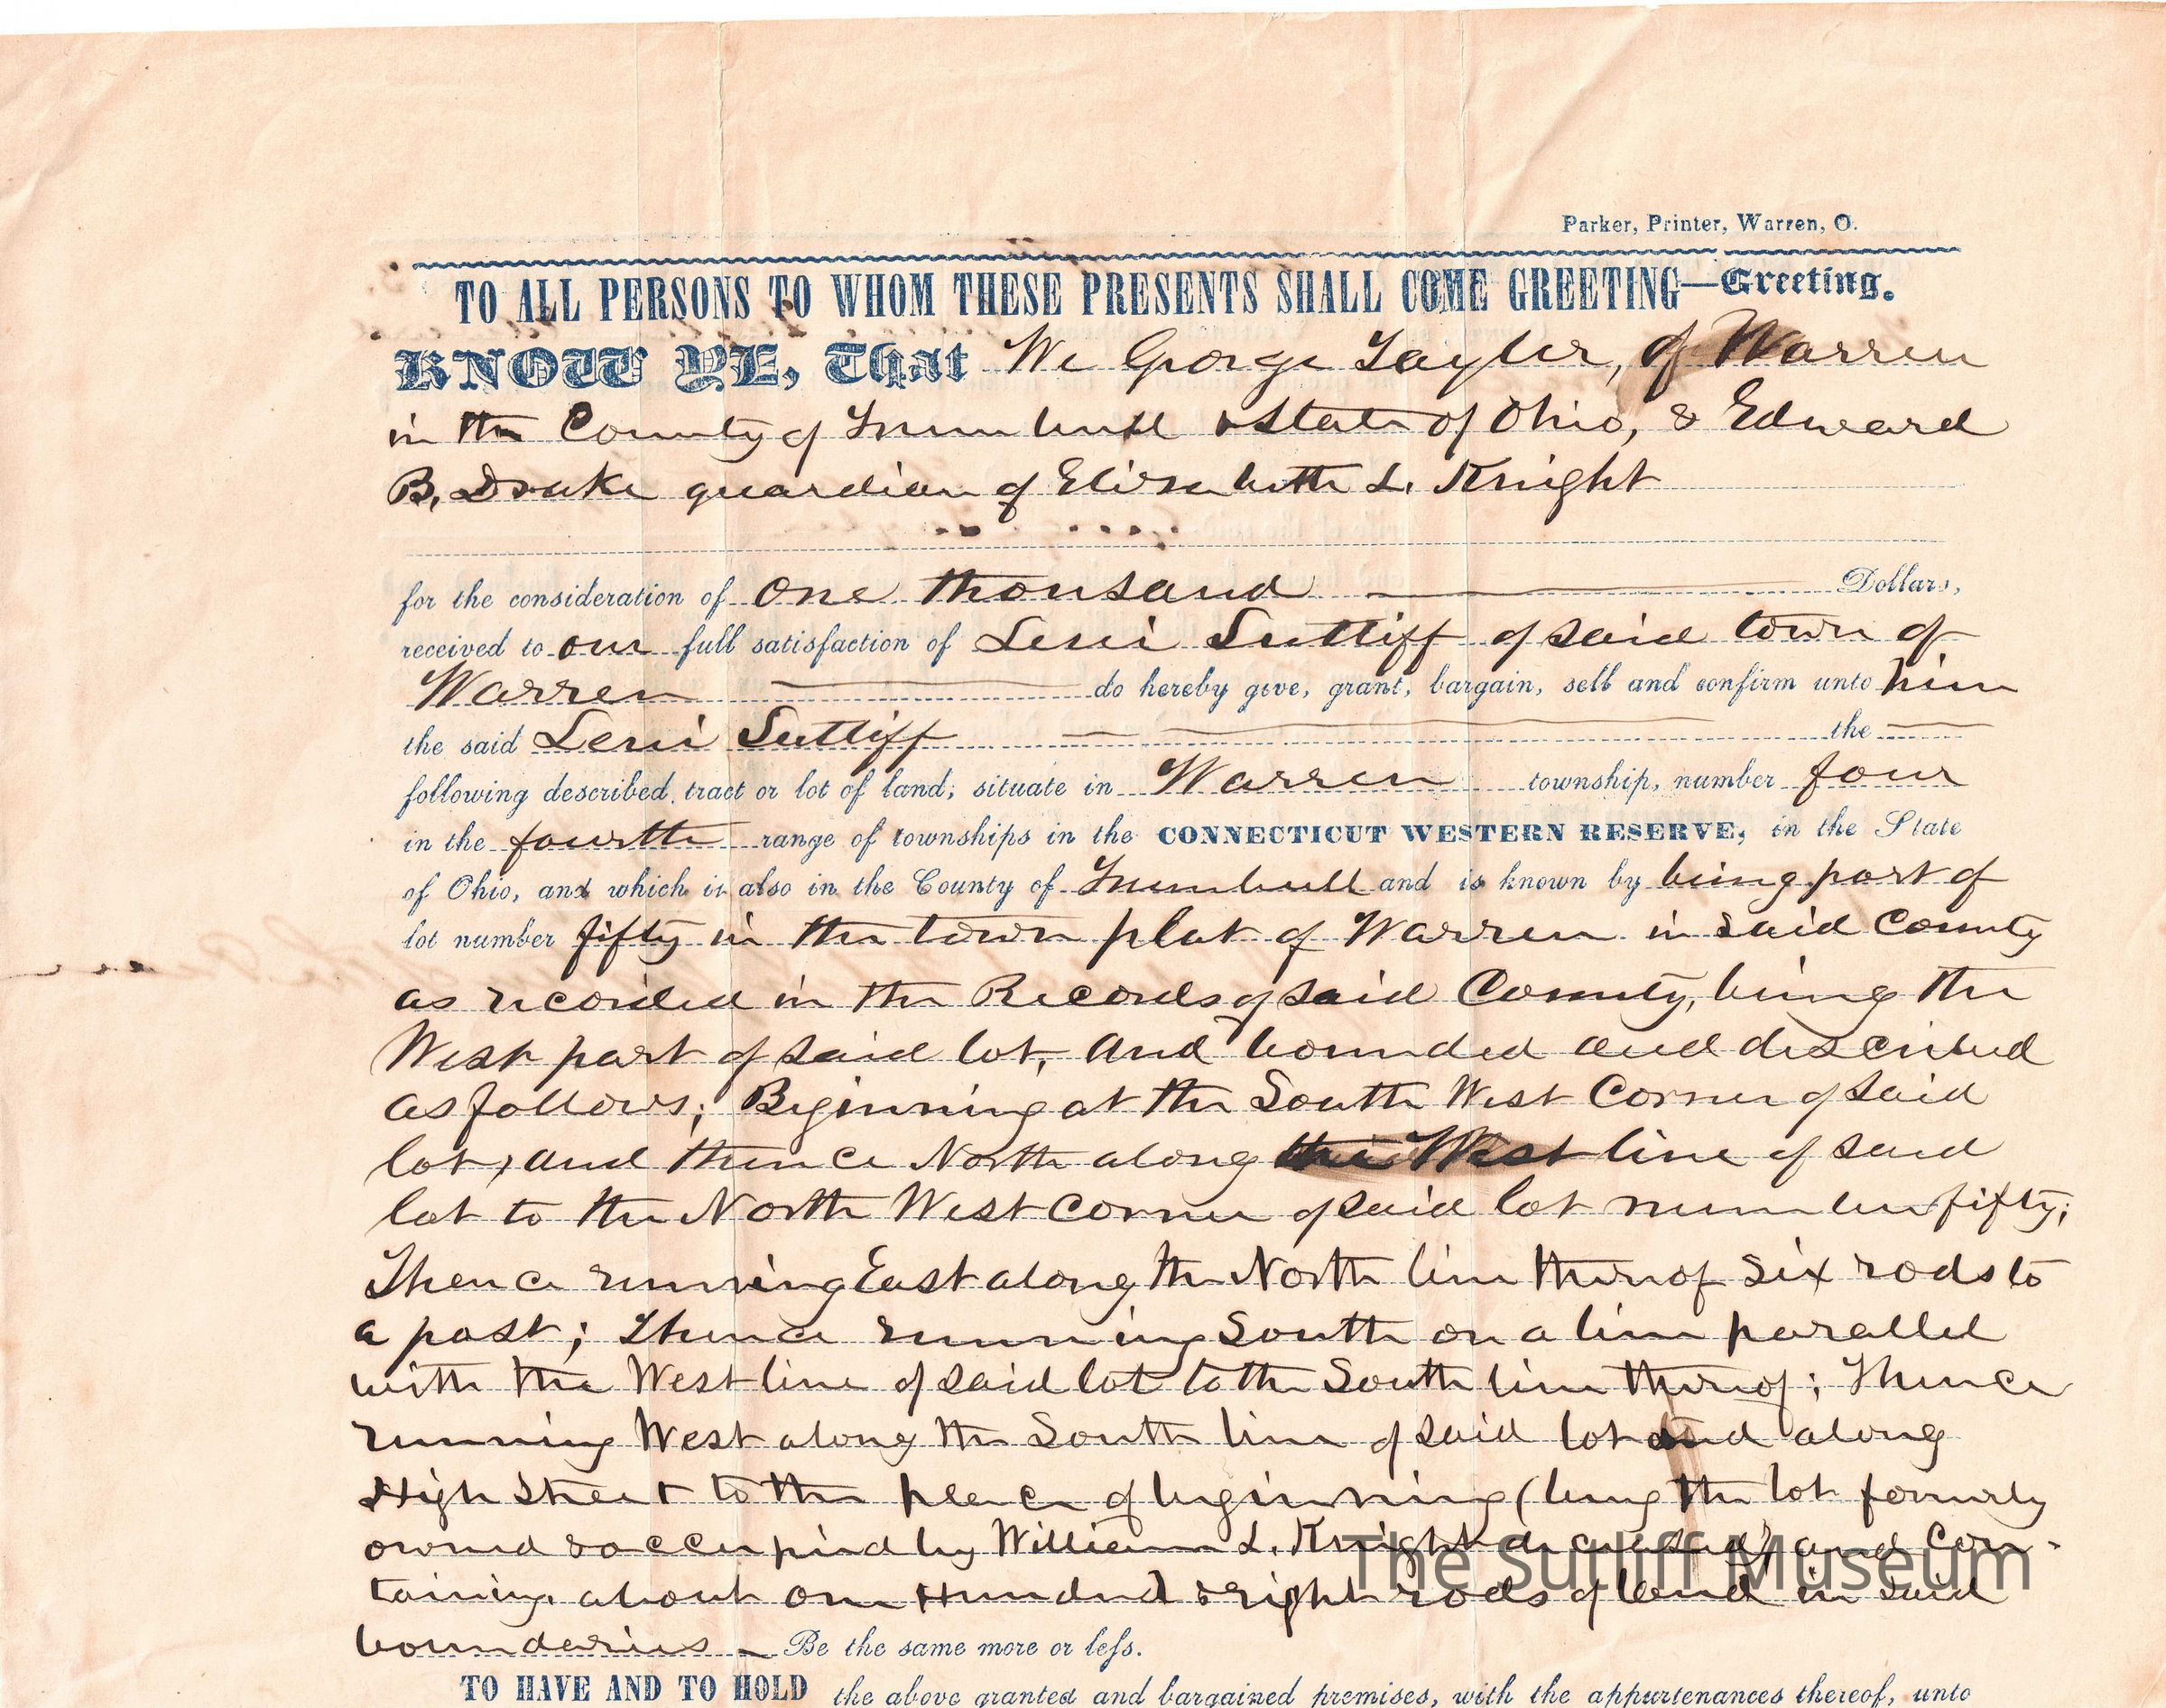 Parker, Printer, Warren, O.
TO ALL PERSONS TO WHOM THESE PRESENTS SHALL COME GREETING—Greeting.
KNOW YE, That We George Tayler, of Warren
in the County of Trumbull & State of Ohio, & Edward
B. Drake guardian of Elizabeth L. Knight
for the consideration of One thousand Dollars,
received to our full satisfaction of Levi Sutliff of said town of
Warren do hereby give, grant, bargain, sell and confirm unto him
the said Levi Sutliff the
following described tract or lot of land; situate in Warren township, number four
in the fourth range of townships in the CONNECTICUT WESTERN RESERVE, in the State
of Ohio, and which is also in the County of Trumbull and is known by being part of
lot number fifty in the town plat of Warren in said County
as recorded in the Records of said County, being the
West part of said lot, and bounded and described
as follows; Beginning at the South West Corner of said
lot, and thence North along the West line of said
lot to the North West corner of said lot number fifty;
Thence running East along the North line thereof six rods to
a post; Thence running South on a line parallel
with the West line of said lot to the South line thereof; Thence
running West along the South line of said lot and along
High Street to the place of beginning (being the lot formerly
owned & occupied by William L. Knight deceased) and con-
taining about one Hundred & eight rods of land in said
boundaries Be the same more or less.
TO HAVE AND TO HOLD the above granted and bargained premises, with the appurtenances thereof, unto
The Sutliff Museum